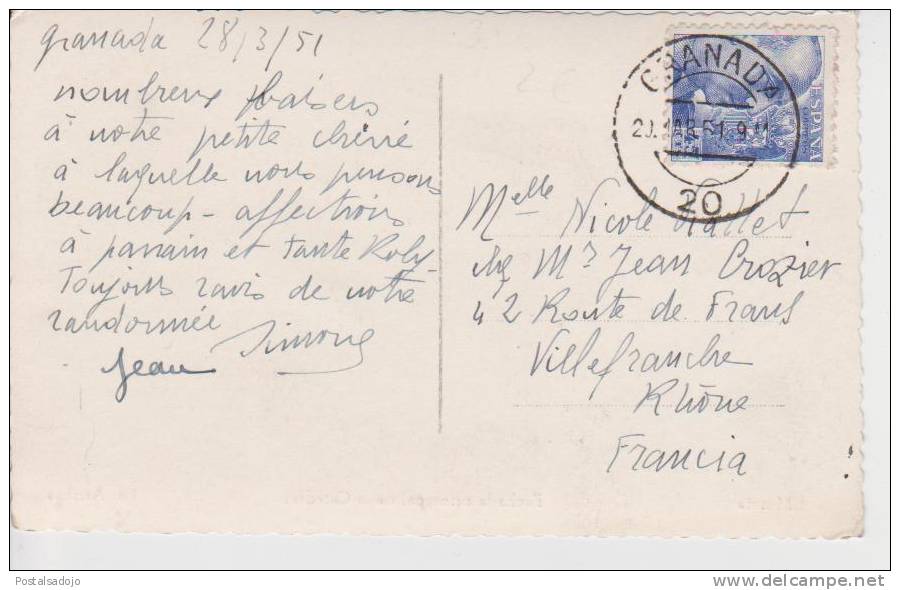 Granada 28/3/51
nombreux baisers
à notre petite chérie
à laquelle nous pensons
beaucoup - affections
à parrain et tante Roby
Toujours ravis de notre
randonnée
Simone
Jean
GRANADA
MAR 51
20
ESPAÑA
Melle Nicole Mallet
chez Mr Jean Crozier
42 Route de Frans
Villefranche
Rhône
Francia
Postalsadojo
delcampe.net